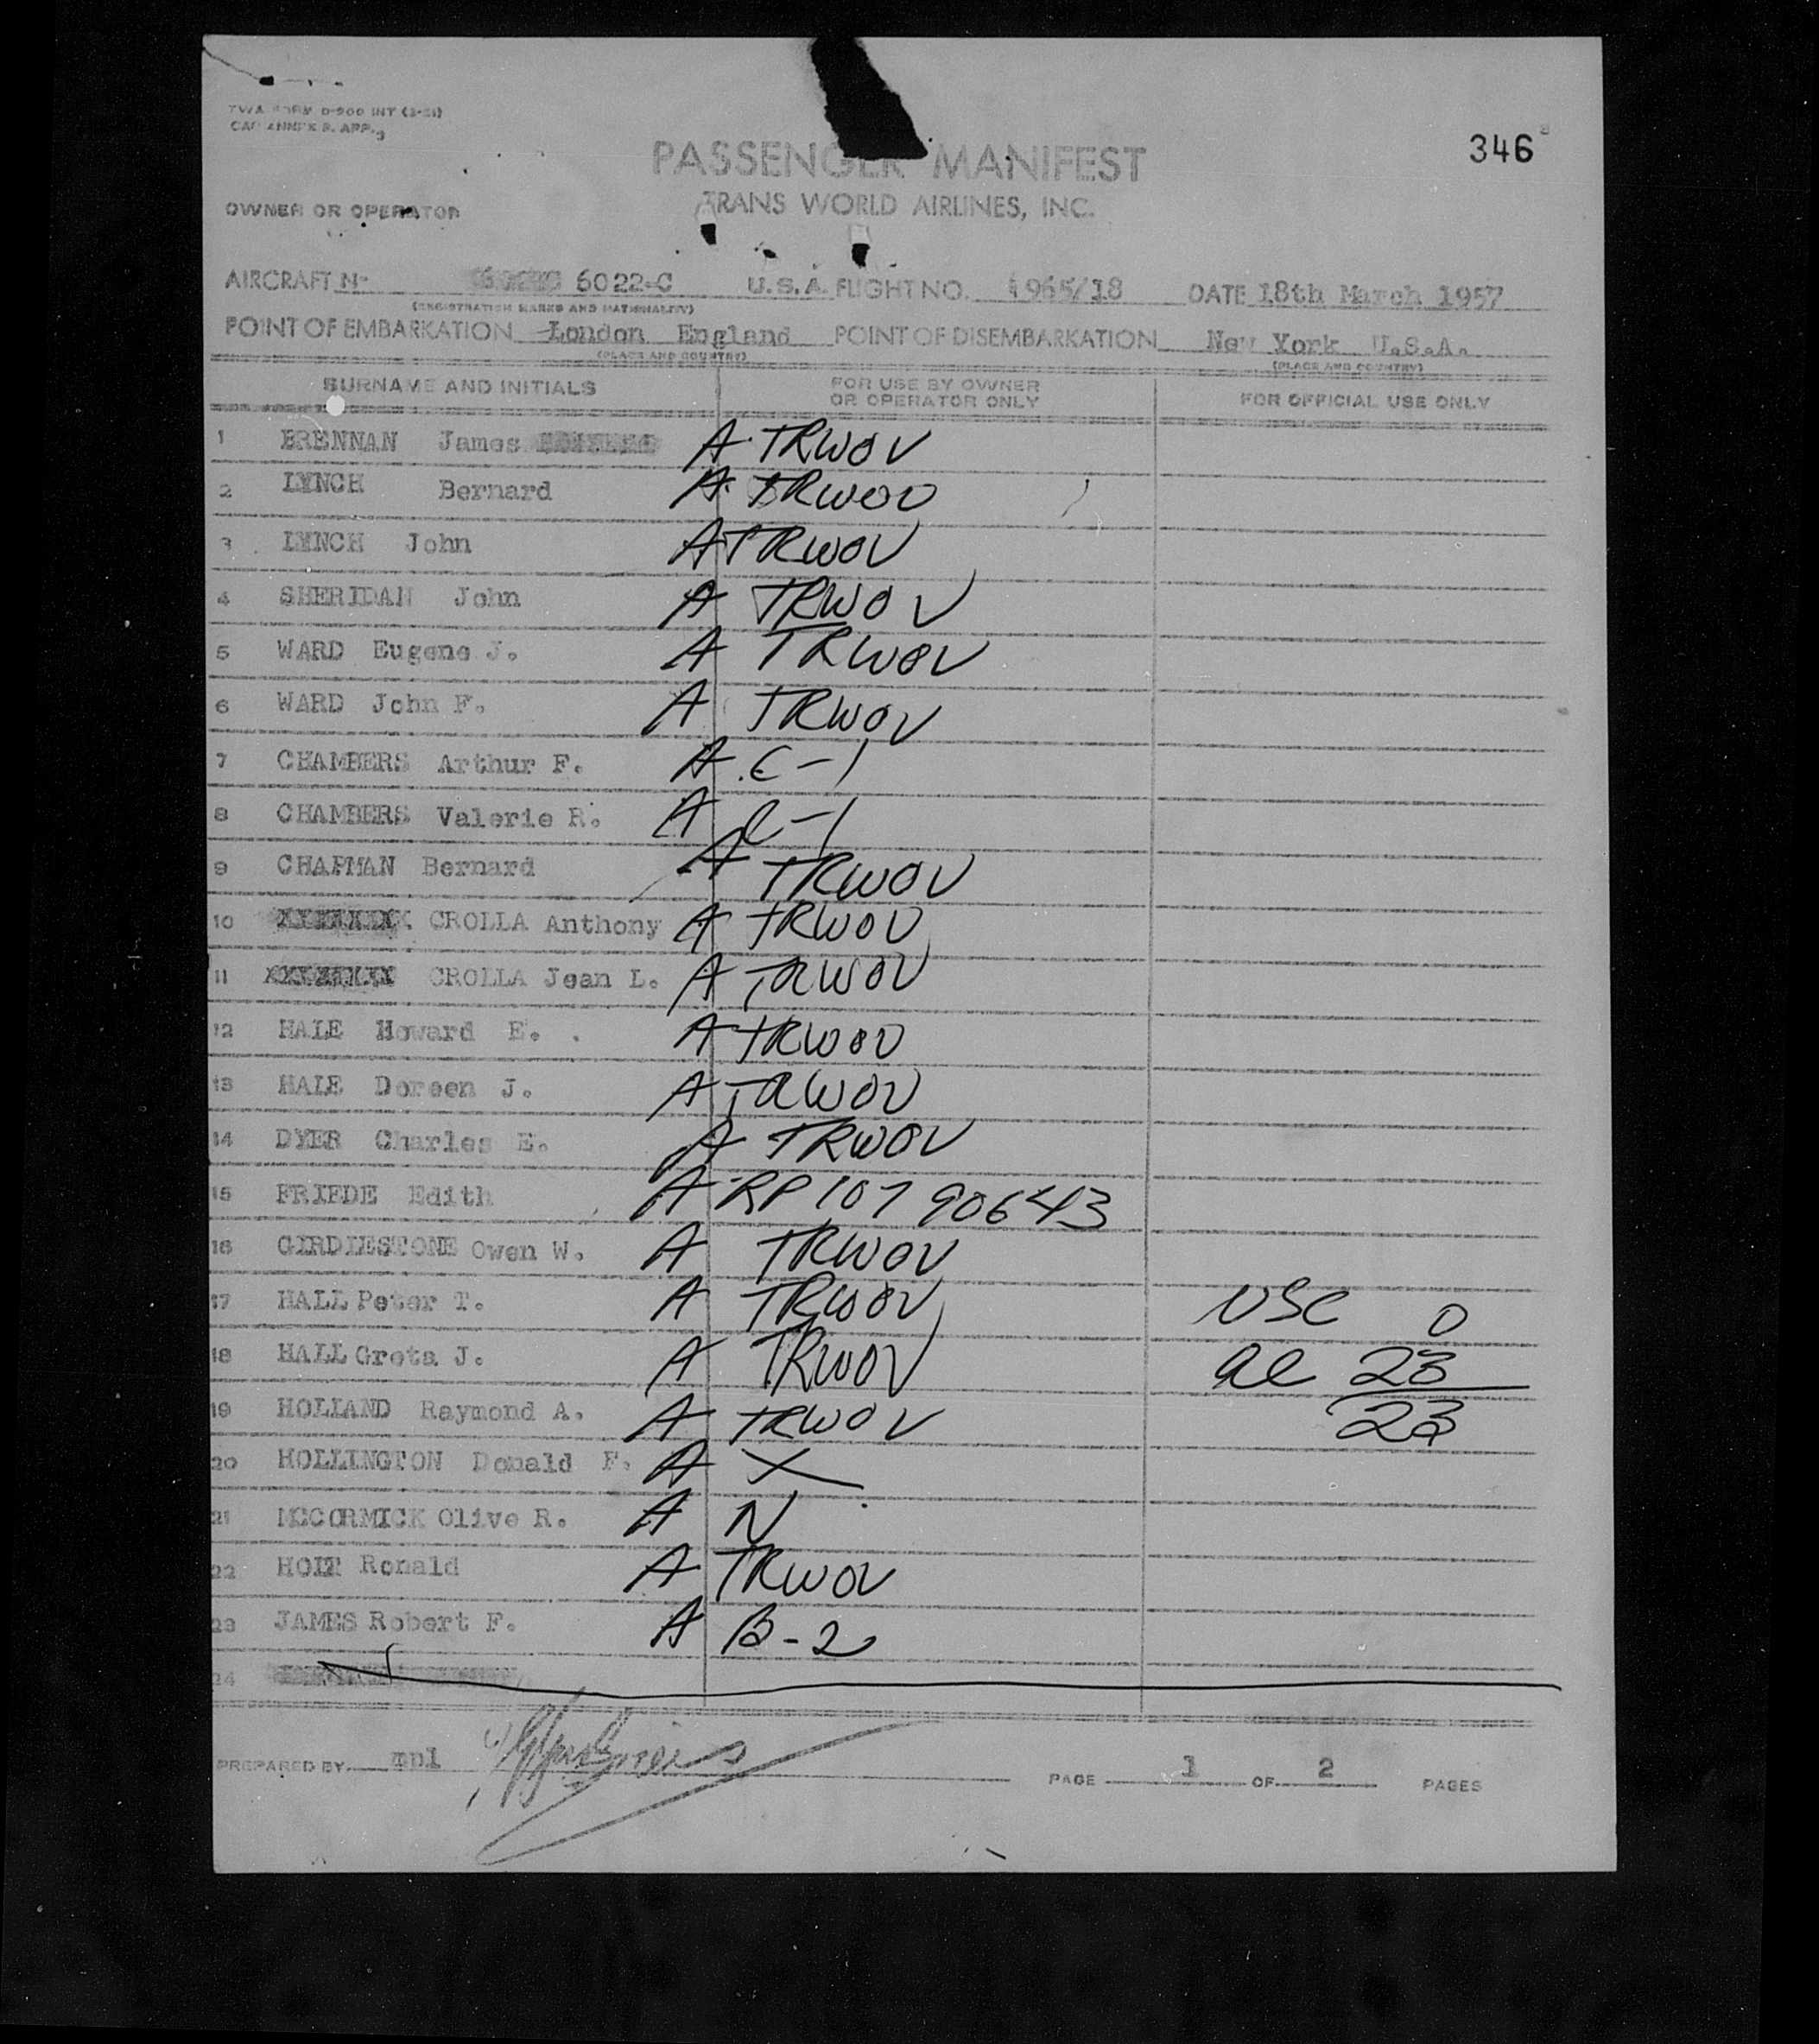 TWA FORM D-900 INT
346
PASSENGER MANIFEST
OWNER OR OPERATOR TRANS WORLD AIRLINES, INC.
AIRCRAFT No 6022-C U.S.A. FLIGHT NO. 965/18 DATE 18th March 1957
(REGISTRATION MARKS AND NATIONALITY)
POINT OF EMBARKATION London England POINT OF DISEMBARKATION New York U.S.A.
(PLACE AND COUNTRY) (PLACE AND COUNTRY)
SURNAME AND INITIALS FOR USE BY OWNER OR OPERATOR ONLY FOR OFFICIAL USE ONLY
1 BRENNAN James A TRWOV
2 LYNCH Bernard A TRWOV
3 LYNCH John A TRWOV
4 SHERIDAN John A TRWOV
5 WARD Eugene J. A TRWOV
6 WARD John F. A TRWOV
7 CHAMBERS Arthur F. A C-1
8 CHAMBERS Valerie R. A C-1
9 CHAPMAN Bernard A TRWOV
10 CROLLA Anthony A TRWOV
11 CROLLA Jean L. A TRWOV
12 HALE Howard E. A TRWOV
13 HALE Doreen J. A TRWOV
14 DYER Charles E. A TRWOV
15 FRIEDE Edith A RP 107 90643
16 GIRDLESTONE Owen W. A TRWOV
17 HALL Peter T. A TRWOV USC 0
18 HALL Greta J. A TRWOV al 23
19 HOLLAND Raymond A. A TRWOV 23
20 HOLLINGTON Donald F. A X
21 MCCORMICK Olive R. A N
22 HOLT Ronald A TRWOV
23 JAMES Robert F. A B-2
24
PREPARED BY mpl PAGE 1 OF 2 PAGES